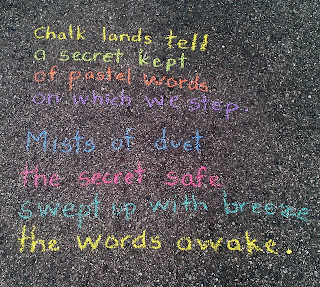 Chalk lands tell
a secret kept
of pastel words
on which we step.
Mists of dust
the secret safe
swept up with breeze
the words awake.